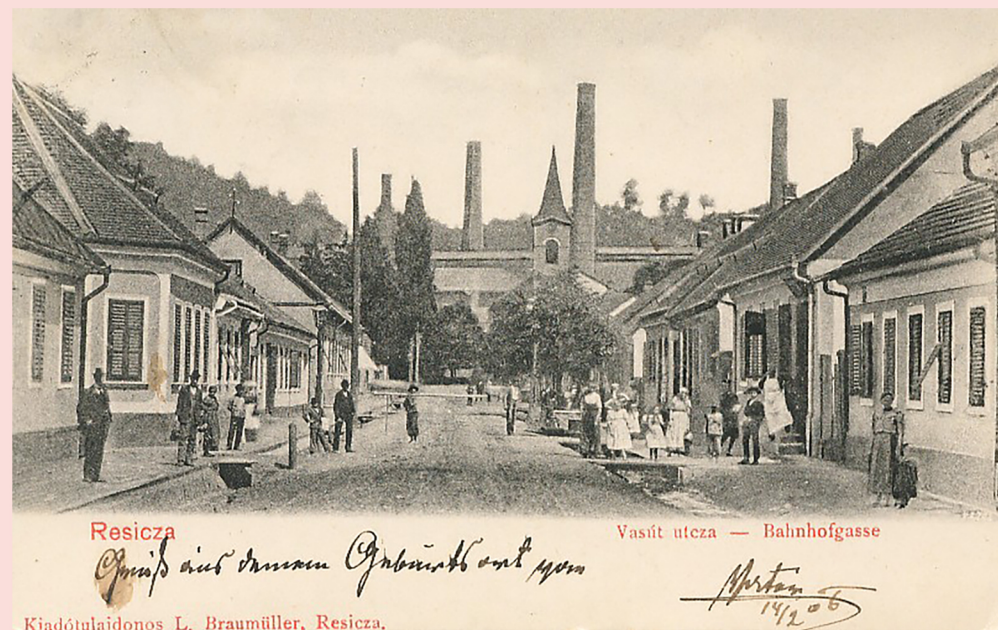 Resicza
Vasút utcza — Bahnhofgasse
Gruß aus deinem Geburtsort vom
14/2 06
Kiadótulajdonos L. Braumüller, Resicza.